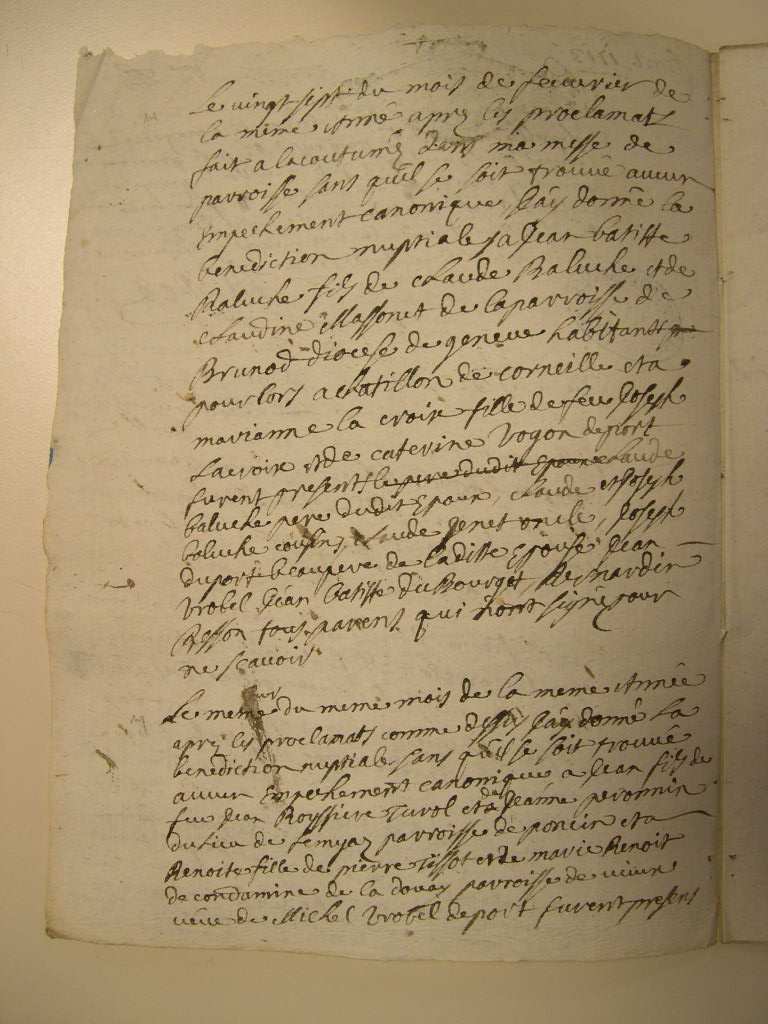 Le vingt sept du mois de feuvrier de
la meme Année aprez les proclamats
fait a lacoutumée dans ma messe de
parroisse sans qu'il se soit trouvé aucun
Empechement canonique J'ay donné la
benediction nuptiale a Jean batiste
Baluche fils de claude Baluche et de
claudine Massonet de la parroisse de
Brunod diocese de geneve habitant
pour lors a chatillon de corneille et a
marianne la croix fille de feu Joseph
Lacroix et de caterine Vogon de port
furent presents le pere dudit Epoux claude
baluche pere dudit Epoux, claude et Joseph
baluche cousins, claude Jenet oncle, Joseph
duport beaupere de laditte Epouse Jean
Vrobel Jean batiste du Bourget, Bernardin
Besson tous parents qui n'ont signé pour
ne scavoir
Le meme jour du meme mois de la meme Année
aprez les proclamats comme dessus J'ay donné La
benediction nuptiale sans qu'il se soit trouvé
aucun Empechement canonique a Jean fils de
feu Jean Royssiere Turol et de Jeanne peronnin
du lieu de pàrroisse de poncin et a
Benoite fille de pierre Tissot et de marie Benoit
de condamine de la douay parroisse de
veuve de Michel Vrobel de port furent presens